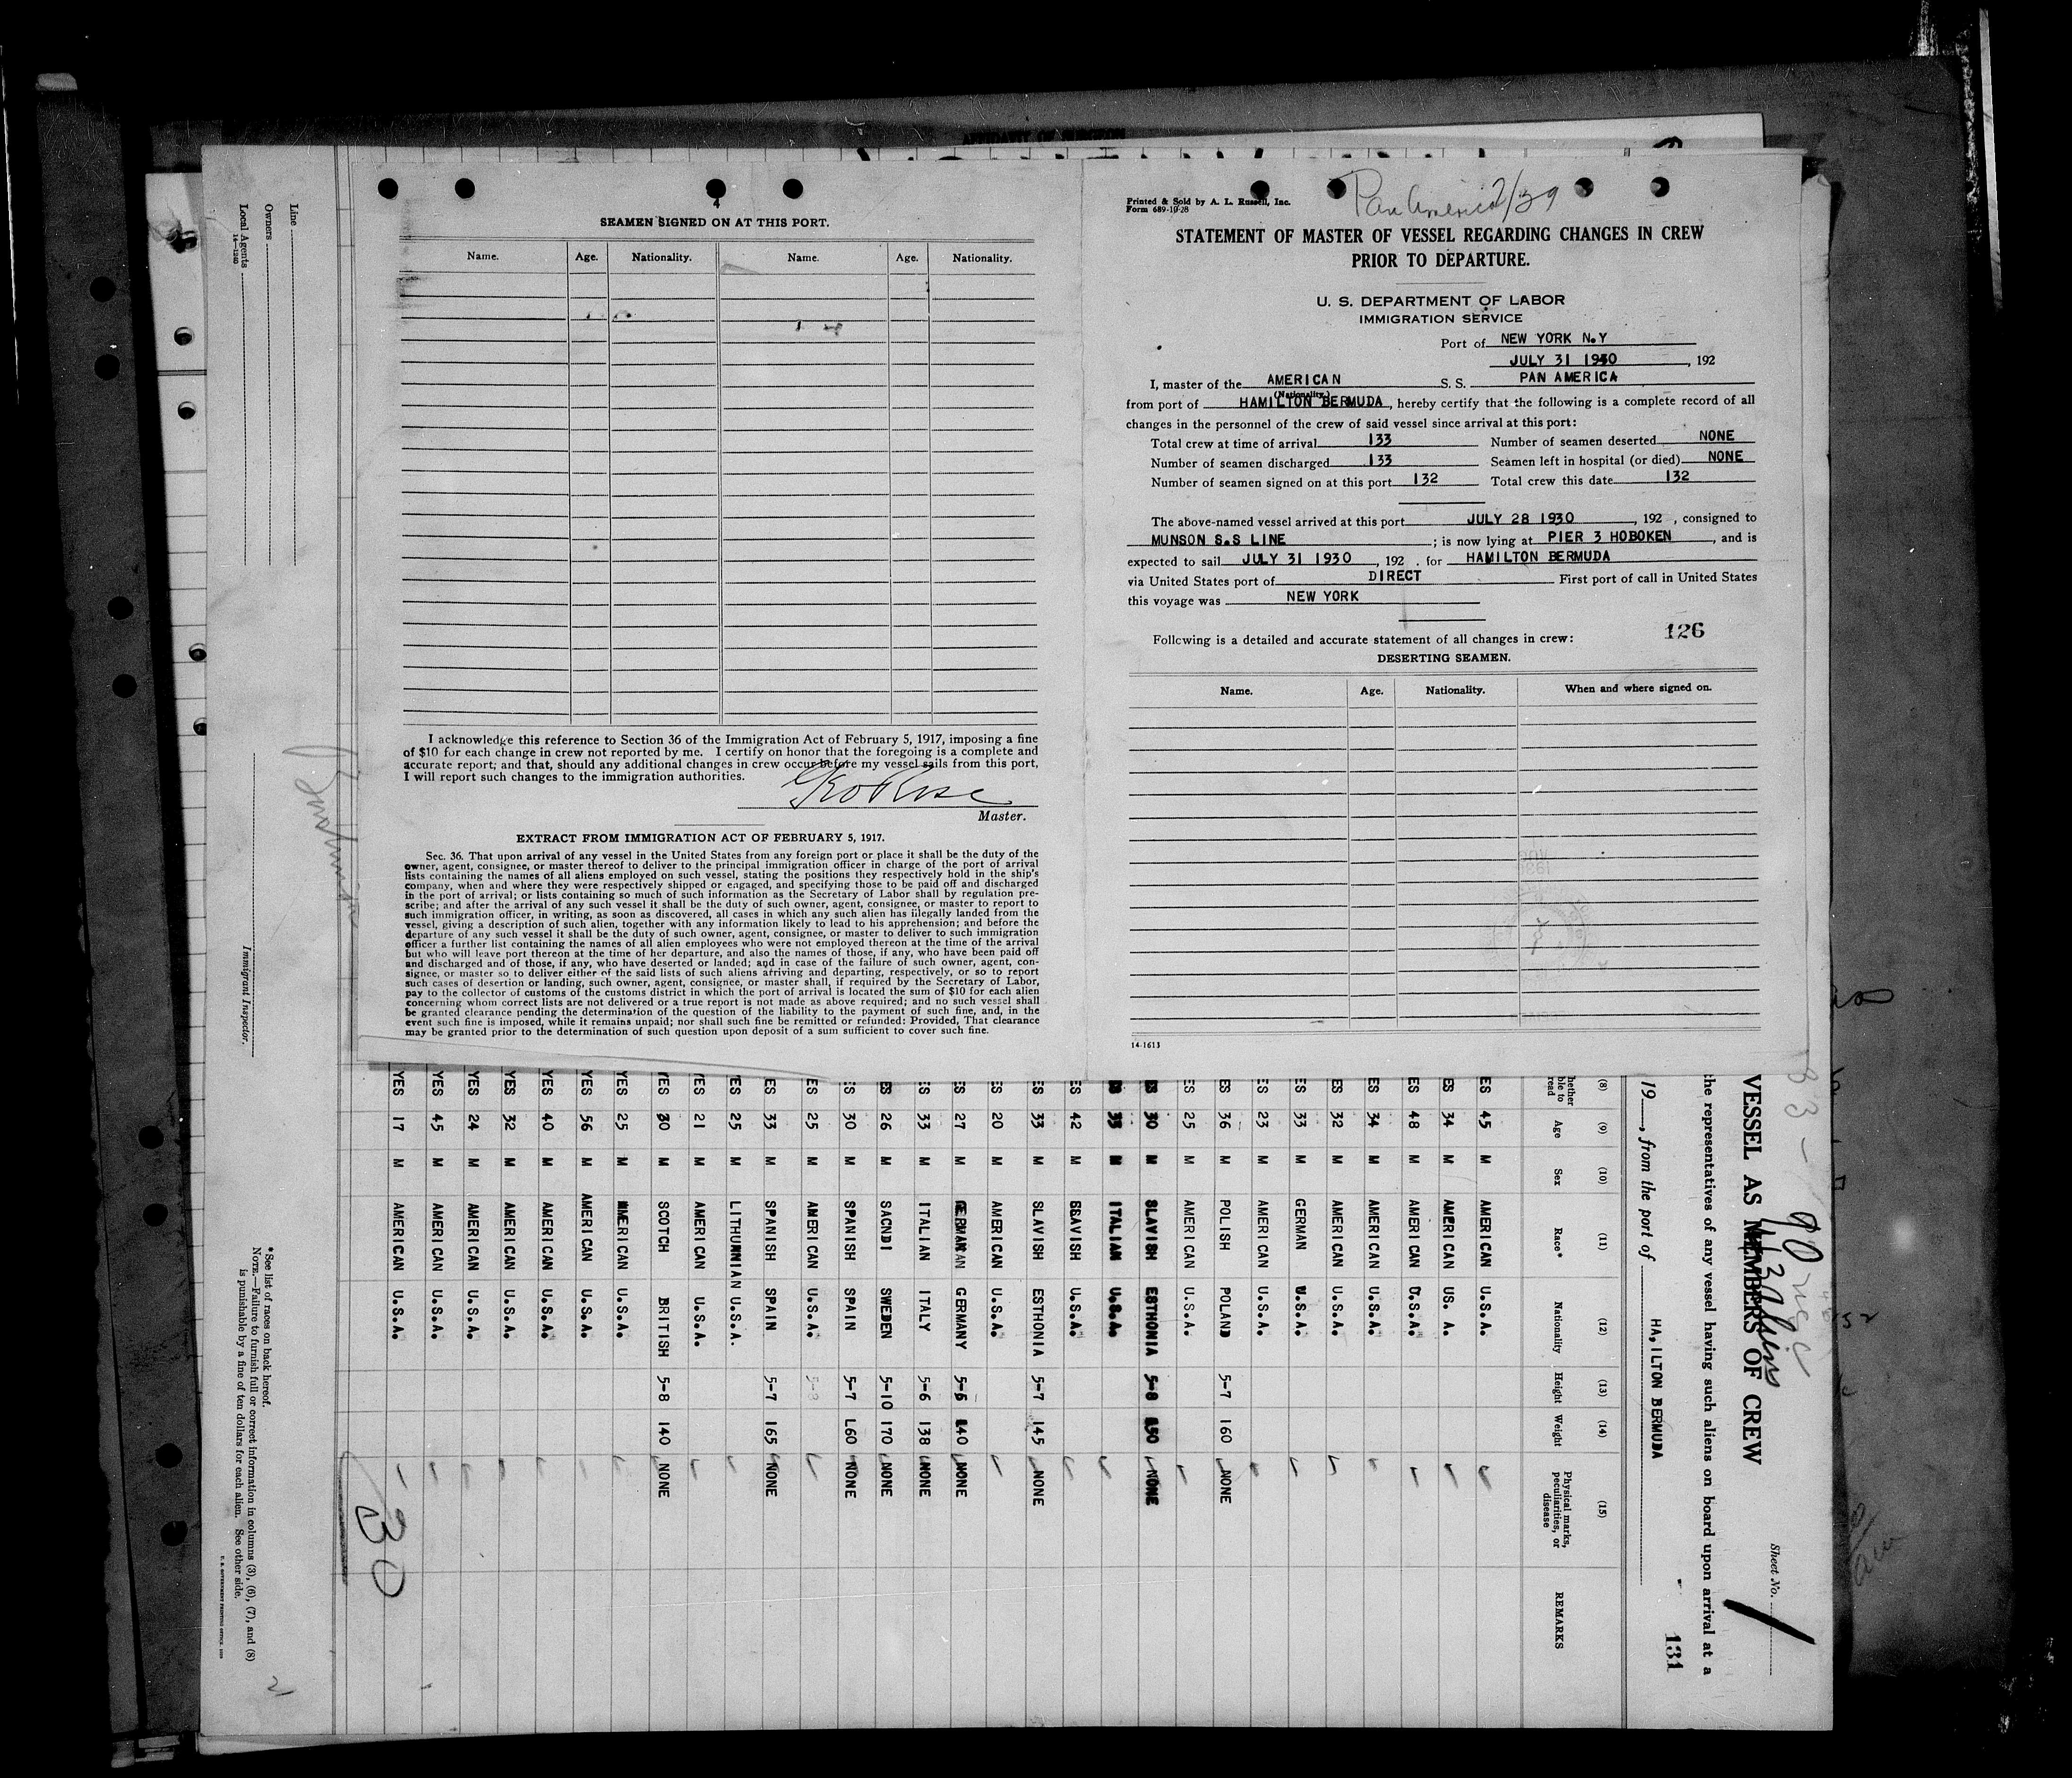 4
SEAMEN SIGNED ON AT THIS PORT.
Name. Age. Nationality. Name. Age. Nationality.
I acknowledge this reference to Section 36 of the Immigration Act of February 5, 1917, imposing a fine
of $10 for each change in crew not reported by me. I certify on honor that the foregoing is a complete and
accurate report; and that, should any additional changes in crew occur before my vessel sails from this port,
I will report such changes to the immigration authorities.
Geo Rose
Master.
EXTRACT FROM IMMIGRATION ACT OF FEBRUARY 5, 1917.
Sec. 36. That upon arrival of any vessel in the United States from any foreign port or place it shall be the duty of the
owner, agent, consignee, or master thereof to deliver to the principal immigration officer in charge of the port of arrival
lists containing the names of all aliens employed on such vessel, stating the positions they respectively hold in the ship's
company, when and where they were respectively shipped or engaged, and specifying those to be paid off and discharged
in the port of arrival; or lists containing so much of such information as the Secretary of Labor shall by regulation pre-
scribe; and after the arrival of any such vessel it shall be the duty of such owner, agent, consignee, or master to report to
such immigration officer, in writing, as soon as discovered, all cases in which any such alien has illegally landed from the
vessel, giving a description of such alien, together with any information likely to lead to his apprehension; and before the
departure of any such vessel it shall be the duty of such owner, agent, consignee, or master to deliver to such immigration
officer a further list containing the names of all alien employees who were not employed thereon at the time of the arrival
but who will leave port thereon at the time of her departure, and also the names of those, if any, who have been paid off
and discharged and of those, if any, who have deserted or landed; and in case of the failure of such owner, agent, con-
signee, or master so to deliver either of the said lists of such aliens arriving and departing, respectively, or so to report
such cases of desertion or landing, such owner, agent, consignee, or master shall, if required by the Secretary of Labor,
pay to the collector of customs of the customs district in which the port of arrival is located the sum of $10 for each alien
concerning whom correct lists are not delivered or a true report is not made as above required; and no such vessel shall
be granted clearance pending the determination of the question of the liability to the payment of such fine, and, in the
event such fine is imposed, while it remains unpaid; nor shall such fine be remitted or refunded: Provided, That clearance
may be granted prior to the determination of such question upon deposit of a sum sufficient to cover such fine.
Pan America 7/39
Printed & Sold by A. L. Russell, Inc.
Form 689-10-28
STATEMENT OF MASTER OF VESSEL REGARDING CHANGES IN CREW
PRIOR TO DEPARTURE.
U. S. DEPARTMENT OF LABOR
IMMIGRATION SERVICE
Port of NEW YORK N.Y
JULY 31 1930, 192
I, master of the AMERICAN S. S. PAN AMERICA
(Nationality.)
from port of HAMILTON BERMUDA, hereby certify that the following is a complete record of all
changes in the personnel of the crew of said vessel since arrival at this port:
Total crew at time of arrival 133 Number of seamen deserted NONE
Number of seamen discharged 133 Seamen left in hospital (or died) NONE
Number of seamen signed on at this port 132 Total crew this date 132
The above-named vessel arrived at this port JULY 28 1930, 192 , consigned to
MUNSON S.S LINE; is now lying at PIER 3 HOBOKEN, and is
expected to sail JULY 31 1930, 192 . for HAMILTON BERMUDA
via United States port of DIRECT First port of call in United States
this voyage was NEW YORK
126
Following is a detailed and accurate statement of all changes in crew:
DESERTING SEAMEN.
Name. Age. Nationality. When and where signed on.
14-1613
Sheet No. 1
VESSEL AS MEMBERS OF CREW
43 aliens
the representatives of any vessel having such aliens on board upon arrival at a
19 , from the port of HA,ILTON BERMUDA
131
(8) (9) (10) (11) (12) (13) (14) (15)
hether ble to read Age Sex Race* Nationality Height Weight Physical marks, peculiarities, or disease REMARKS
ES 45 M AMERICAN U.S.A.
ES 34 M AMERICAN US. A.
ES 48 M AMERICAN U.S.A.
ES 34 M AMERICAN U.S.A.
ES 32 M AMERICAN U.S.A.
ES 33 M GERMAN U.S.A.
ES 23 M AMERICAN U.S.A.
ES 36 M POLISH POLAND 5-7 160 NONE
ES 25 M AMERICAN U.S.A.
ES 30 M SLAVISH ESTHONIA 5-8 150 NONE
ES 35 M ITALIAN U.S.A.
ES 42 M SLAVISH U.S.A.
ES 33 M SLAVISH ESTHONIA 5-7 145 NONE
ES 20 M AMERICAN U.S.A.
ES 27 M GERMAN GERMANY 5-6 140 NONE
ES 33 M ITALIAN ITALY 5-6 138 NONE
ES 26 M SACNDI SWEDEN 5-10 170 NONE
ES 30 M SPANISH SPAIN 5-7 L60 NONE
ES 25 M AMERICAN U.S.A. 5-8
ES 33 M SPANISH SPAIN 5-7 165 NONE
ES 25 M LITHUNNIAN U.S.A.
YES 21 M AMERICAN U.S.A.
YES 30 M SCOTCH BRITISH 5-8 140 NONE
YES 25 M AMERICAN U.S.A.
YES 56 M AMERICAN U.S.A.
YES 40 M AMERICAN U.S.A.
YES 32 M AMERICAN U.S.A.
YES 24 M AMERICAN U.S.A.
YES 45 M AMERICAN U.S.A.
YES 17 M AMERICAN U.S.A.
30
Line
Owners
Local Agents
14-1240
Immigrant Inspector.
*See list of races on back hereof.
NOTE.—Failure to furnish full or correct information in columns (3), (6), (7), and (8)
is punishable by a fine of ten dollars for each alien. See other side.
2